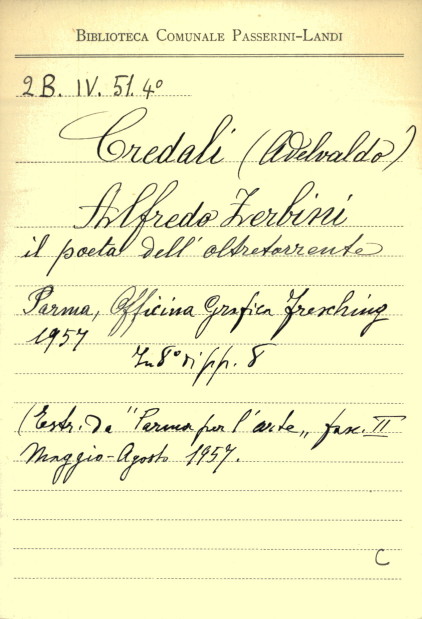 BIBLIOTECA COMUNALE PASSERINI-LANDI
2B. IV. 51. 4°
Credali (Adelvaldo)
Alfredo Zerbini
il poeta dell'oltretorrente
Parma, Officina Grafica Fresching
1957
In 8° di pp. 8
(Estr. da "Parma per l'arte„ fasc. II
Maggio-Agosto 1957.
C